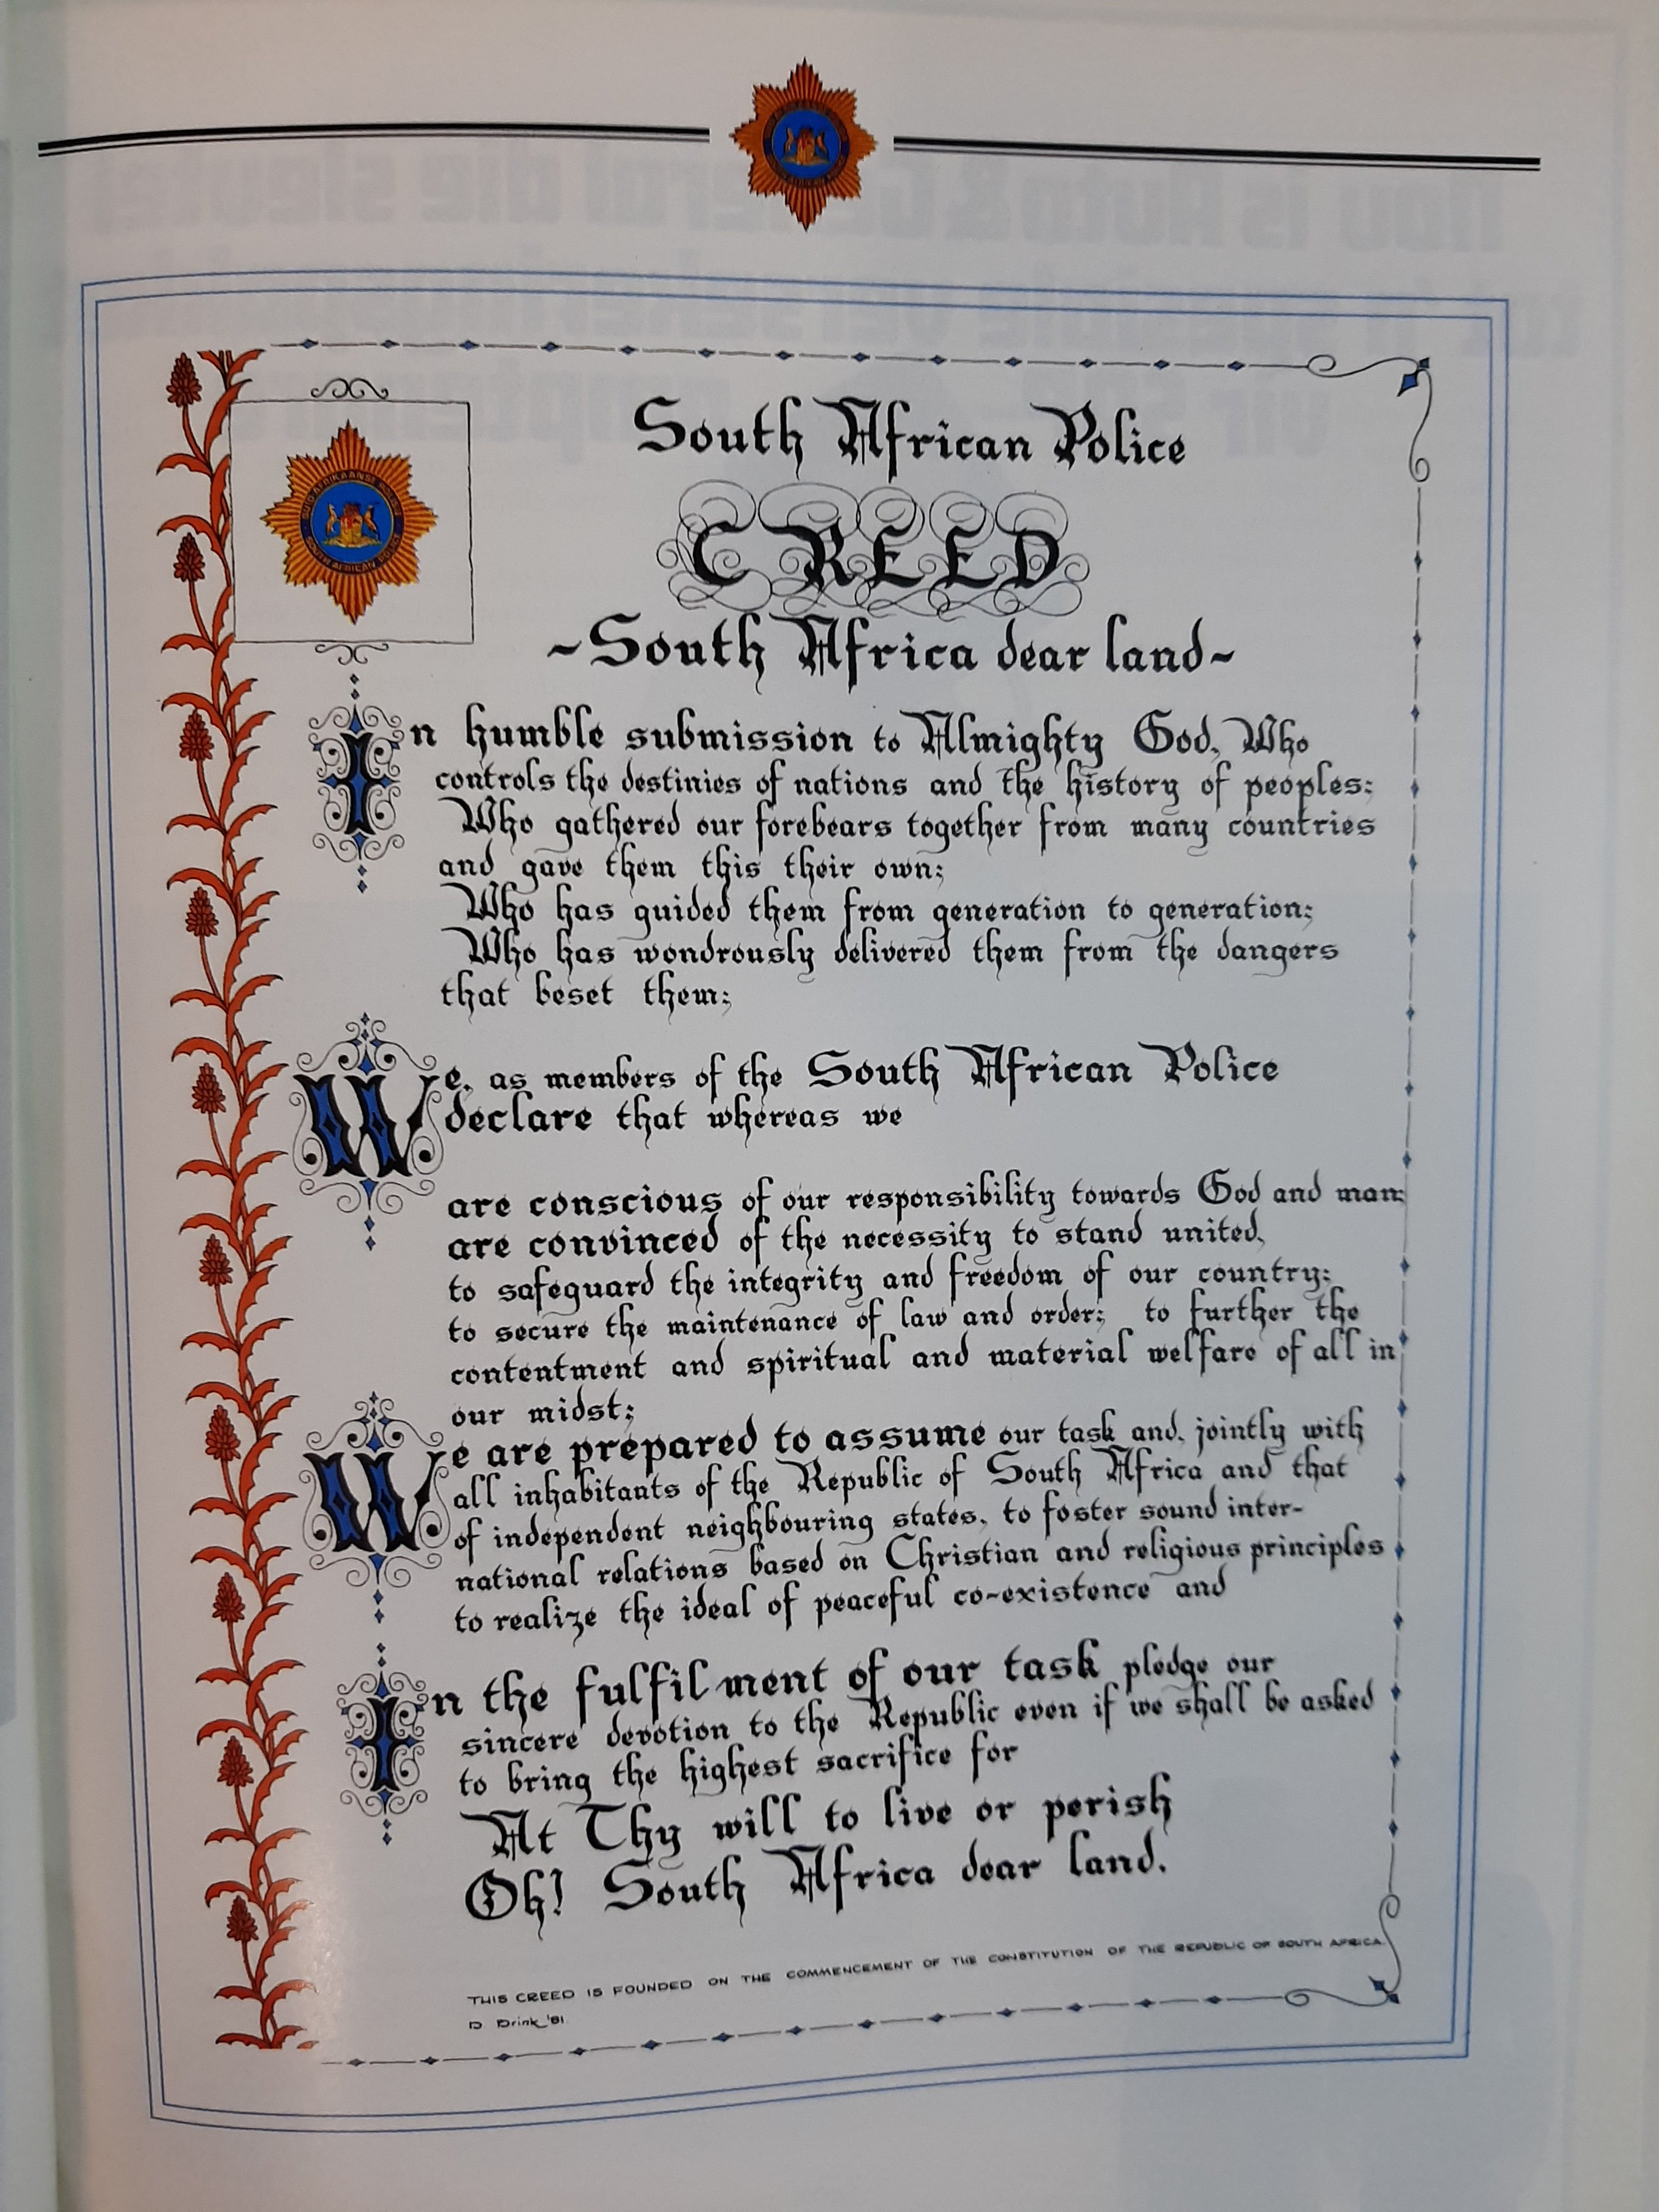 SUID AFRIKAANSE POLISIE
SOUTH AFRICAN POLICE
South African Police
CREED
~South Africa dear land~
In humble submission to Almighty God, Who
controls the destinies of nations and the history of peoples;
Who gathered our forebears together from many countries
and gave them this their own;
Who has guided them from generation to generation;
Who has wondrously delivered them from the dangers
that beset them;
We, as members of the South African Police
declare that whereas we
are conscious of our responsibility towards God and man;
are convinced of the necessity to stand united,
to safeguard the integrity and freedom of our country;
to secure the maintenance of law and order; to further the
contentment and spiritual and material welfare of all in
our midst;
We are prepared to assume our task and, jointly with
all inhabitants of the Republic of South Africa and that
of independent neighbouring states, to foster sound inter-
national relations based on Christian and religious principles
to realize the ideal of peaceful co-existence and
In the fulfilment of our task pledge our
sincere devotion to the Republic even if we shall be asked
to bring the highest sacrifice for
At Thy will to live or perish
Oh! South Africa dear land.
THIS CREED IS FOUNDED ON THE COMMENCEMENT OF THE CONSTITUTION OF THE REPUBLIC OF SOUTH AFRICA.
D. Brink '81